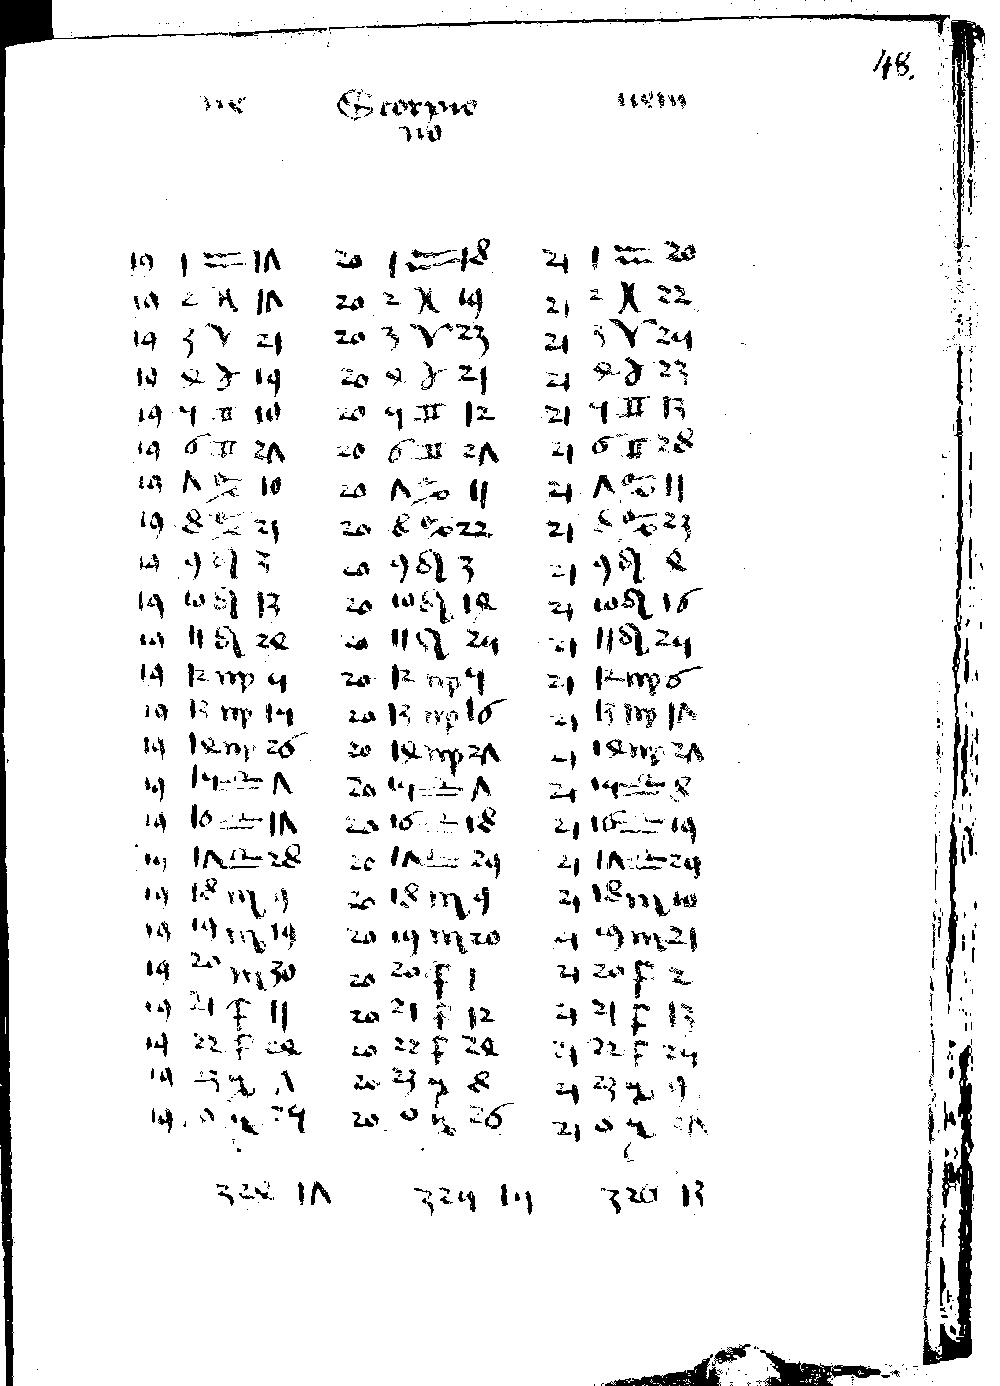 48.
ne Scorpio nem
no
19 1 ♒ 17 20 1 ♒ 18 21 1 ♒ 20
19 2 ♓ 17 20 2 ♓ 19 21 2 ♓ 22
19 3 ♈ 21 20 3 ♈ 23 21 3 ♈ 25
19 4 ♉ 19 20 4 ♉ 21 21 4 ♉ 23
19 5 ♊ 10 20 5 ♊ 12 21 5 ♊ 13
19 6 ♊ 27 20 6 ♊ 27 21 6 ♊ 28
19 7 ♋ 10 20 7 ♋ 11 21 7 ♋ 11
19 8 ♋ 21 20 8 ♋ 22 21 8 ♋ 23
19 9 ♌ 3 20 9 ♌ 3 21 9 ♌ 4
19 10 ♌ 13 20 10 ♌ 14 21 10 ♌ 16
19 11 ♌ 24 20 11 ♌ 25 21 11 ♌ 25
19 12 ♍ 5 20 12 ♍ 5 21 12 ♍ 6
19 13 ♍ 15 20 13 ♍ 16 21 13 ♍ 17
19 14 ♍ 26 20 14 ♍ 27 21 14 ♍ 27
19 15 ♎ 7 20 15 ♎ 7 21 15 ♎ 8
19 16 ♎ 17 20 16 ♎ 18 21 16 ♎ 19
19 17 ♎ 28 20 17 ♎ 29 21 17 ♎ 29
19 18 ♏ 9 20 18 ♏ 9 21 18 ♏ 10
19 19 ♏ 19 20 19 ♏ 20 21 19 ♏ 21
19 20 ♏ 30 20 20 ♐ 1 21 20 ♐ 2
19 21 ♐ 11 20 21 ♐ 12 21 21 ♐ 13
19 22 ♐ 24 20 22 ♐ 24 21 22 ♐ 25
19 23 ♑ 7 20 23 ♑ 8 21 23 ♑ 9
19 0 ♑ 25 20 0 ♑ 26 21 0 ♑ 27
324 17 325 15 326 13